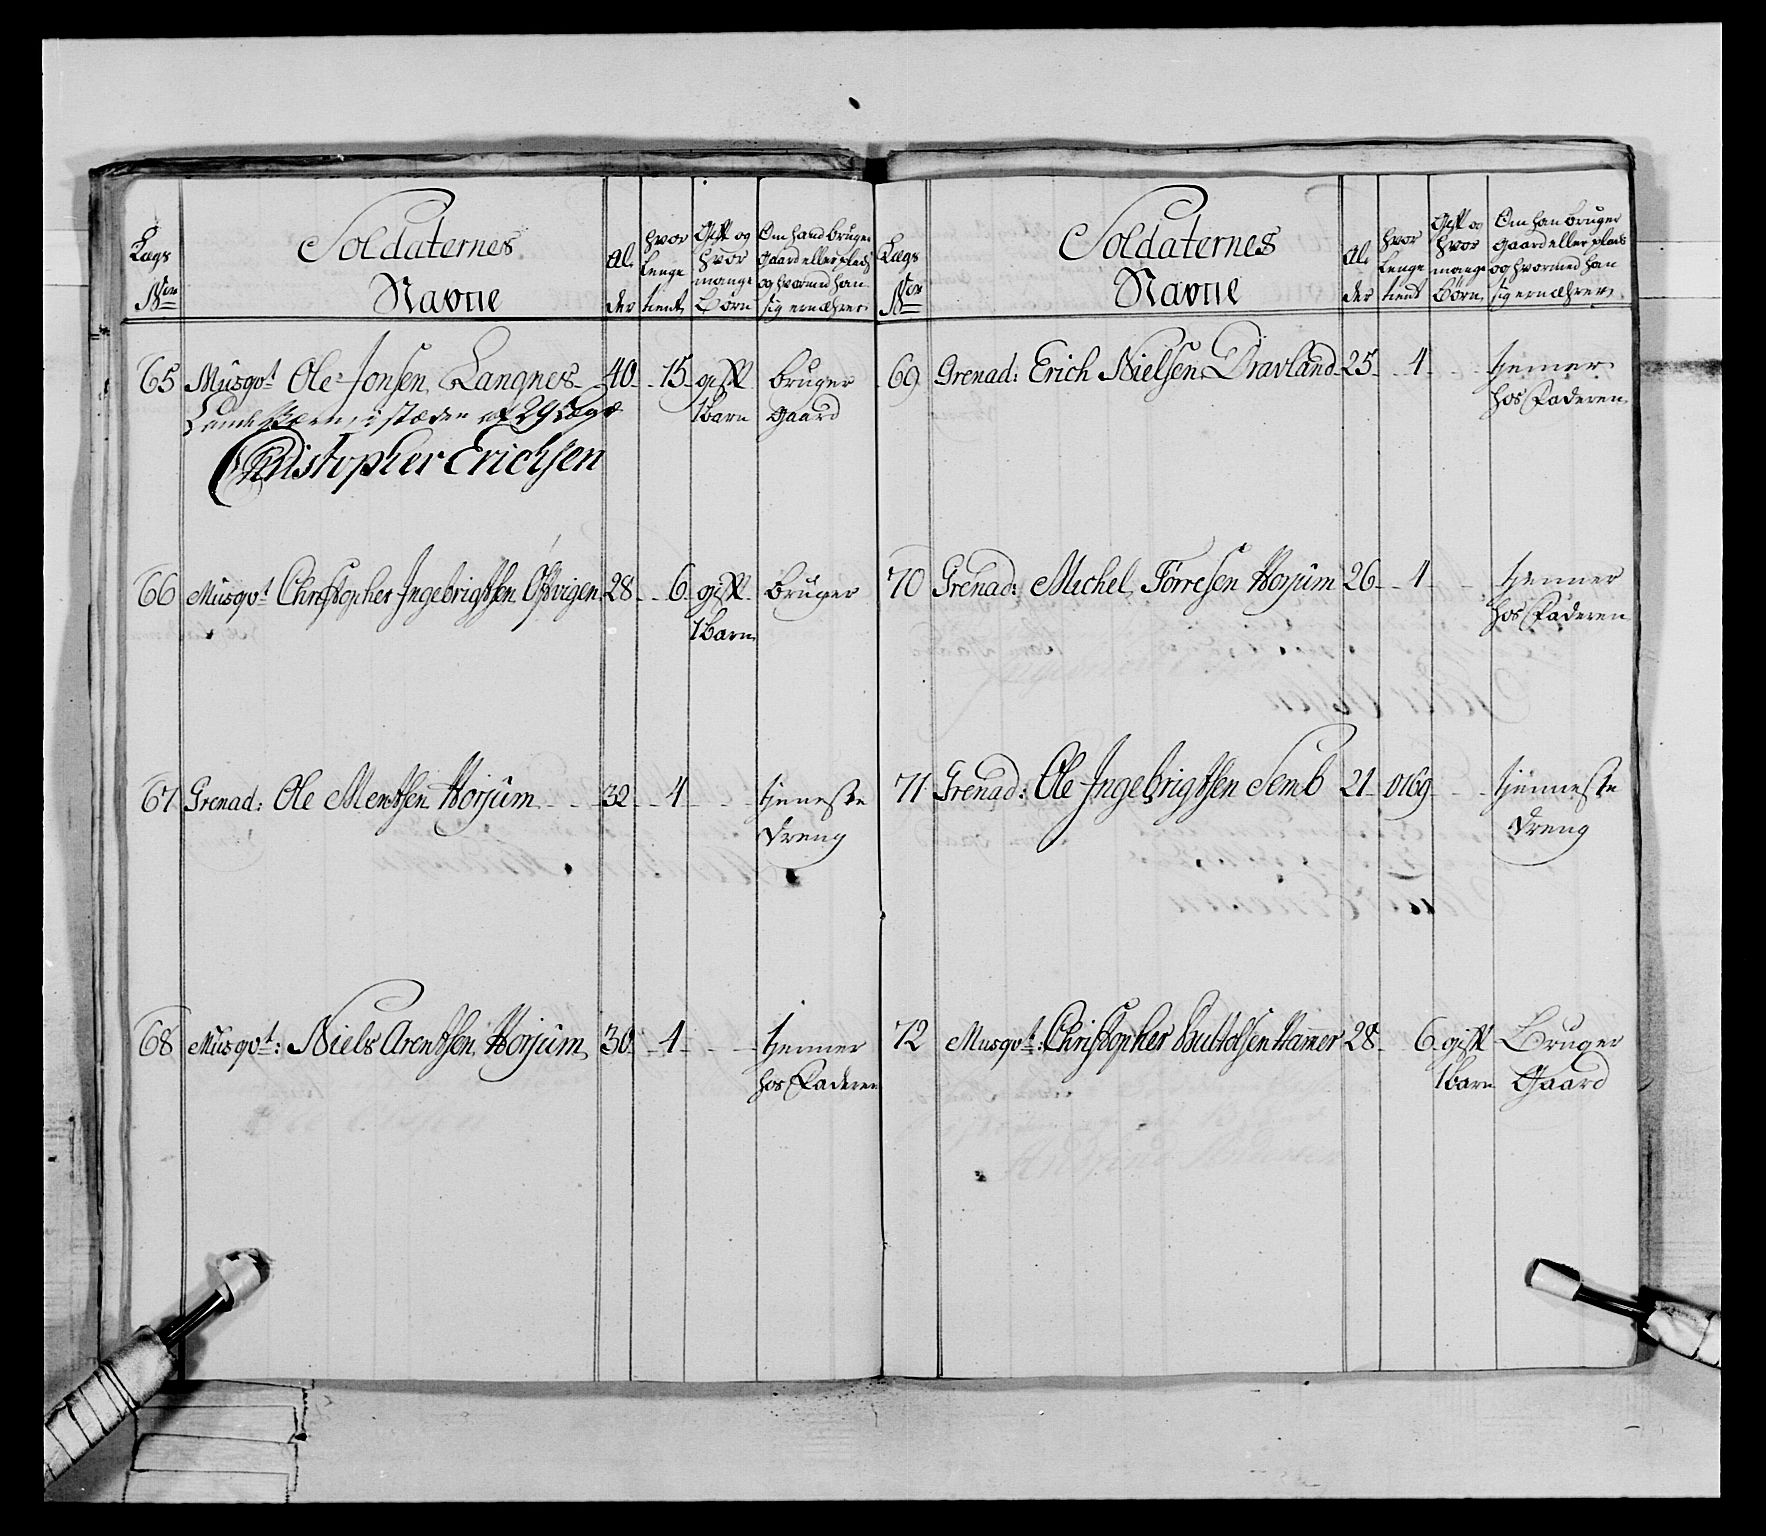 Lægs
Nr
Soldaternes
Navne
Al-
der
hvor
lenge
tient
Gift og
hvor
mange
Børn
Om hand bruger
gaard eller plads
og hvormed han
sig ernæhrer
65 Musqvt Ole Jonsen Langnes 40 15 gift bruger
1 barn gaard
i stæden af 29 Læg
Christopher Erichsen
66 Musqvt Christopher Ingebrigtsen Østvigen 28 6 gift bruger
1 barn
67 Grenad: Ole Mentsen Horjum 32 4 tjeneste
dreng
68 Musqvt: Niels Arentsen Horjum 30 4 tjenner
hos Faderen
Lægs
Nr
Soldaternes
Navne
Al-
der
hvor
lenge
tient
Gift og
hvor
mange
Børn
Om han bruger
gaard eller plads
og hvormed han
sig ernæhrer
69 Grenad: Erich Nielsen Dravland 25 4 tjener
hos Faderen
70 Grenad: Michel Torresen Horjum 26 4 tjenner
hos Faderen
71 Grenad: Ole Ingebrigtsen Semb 21 0169 tjenneste
dreng
72 Musqvt: Christopher Huttolsen Hammer 28 6 gift Bruger
1 barn Gaard